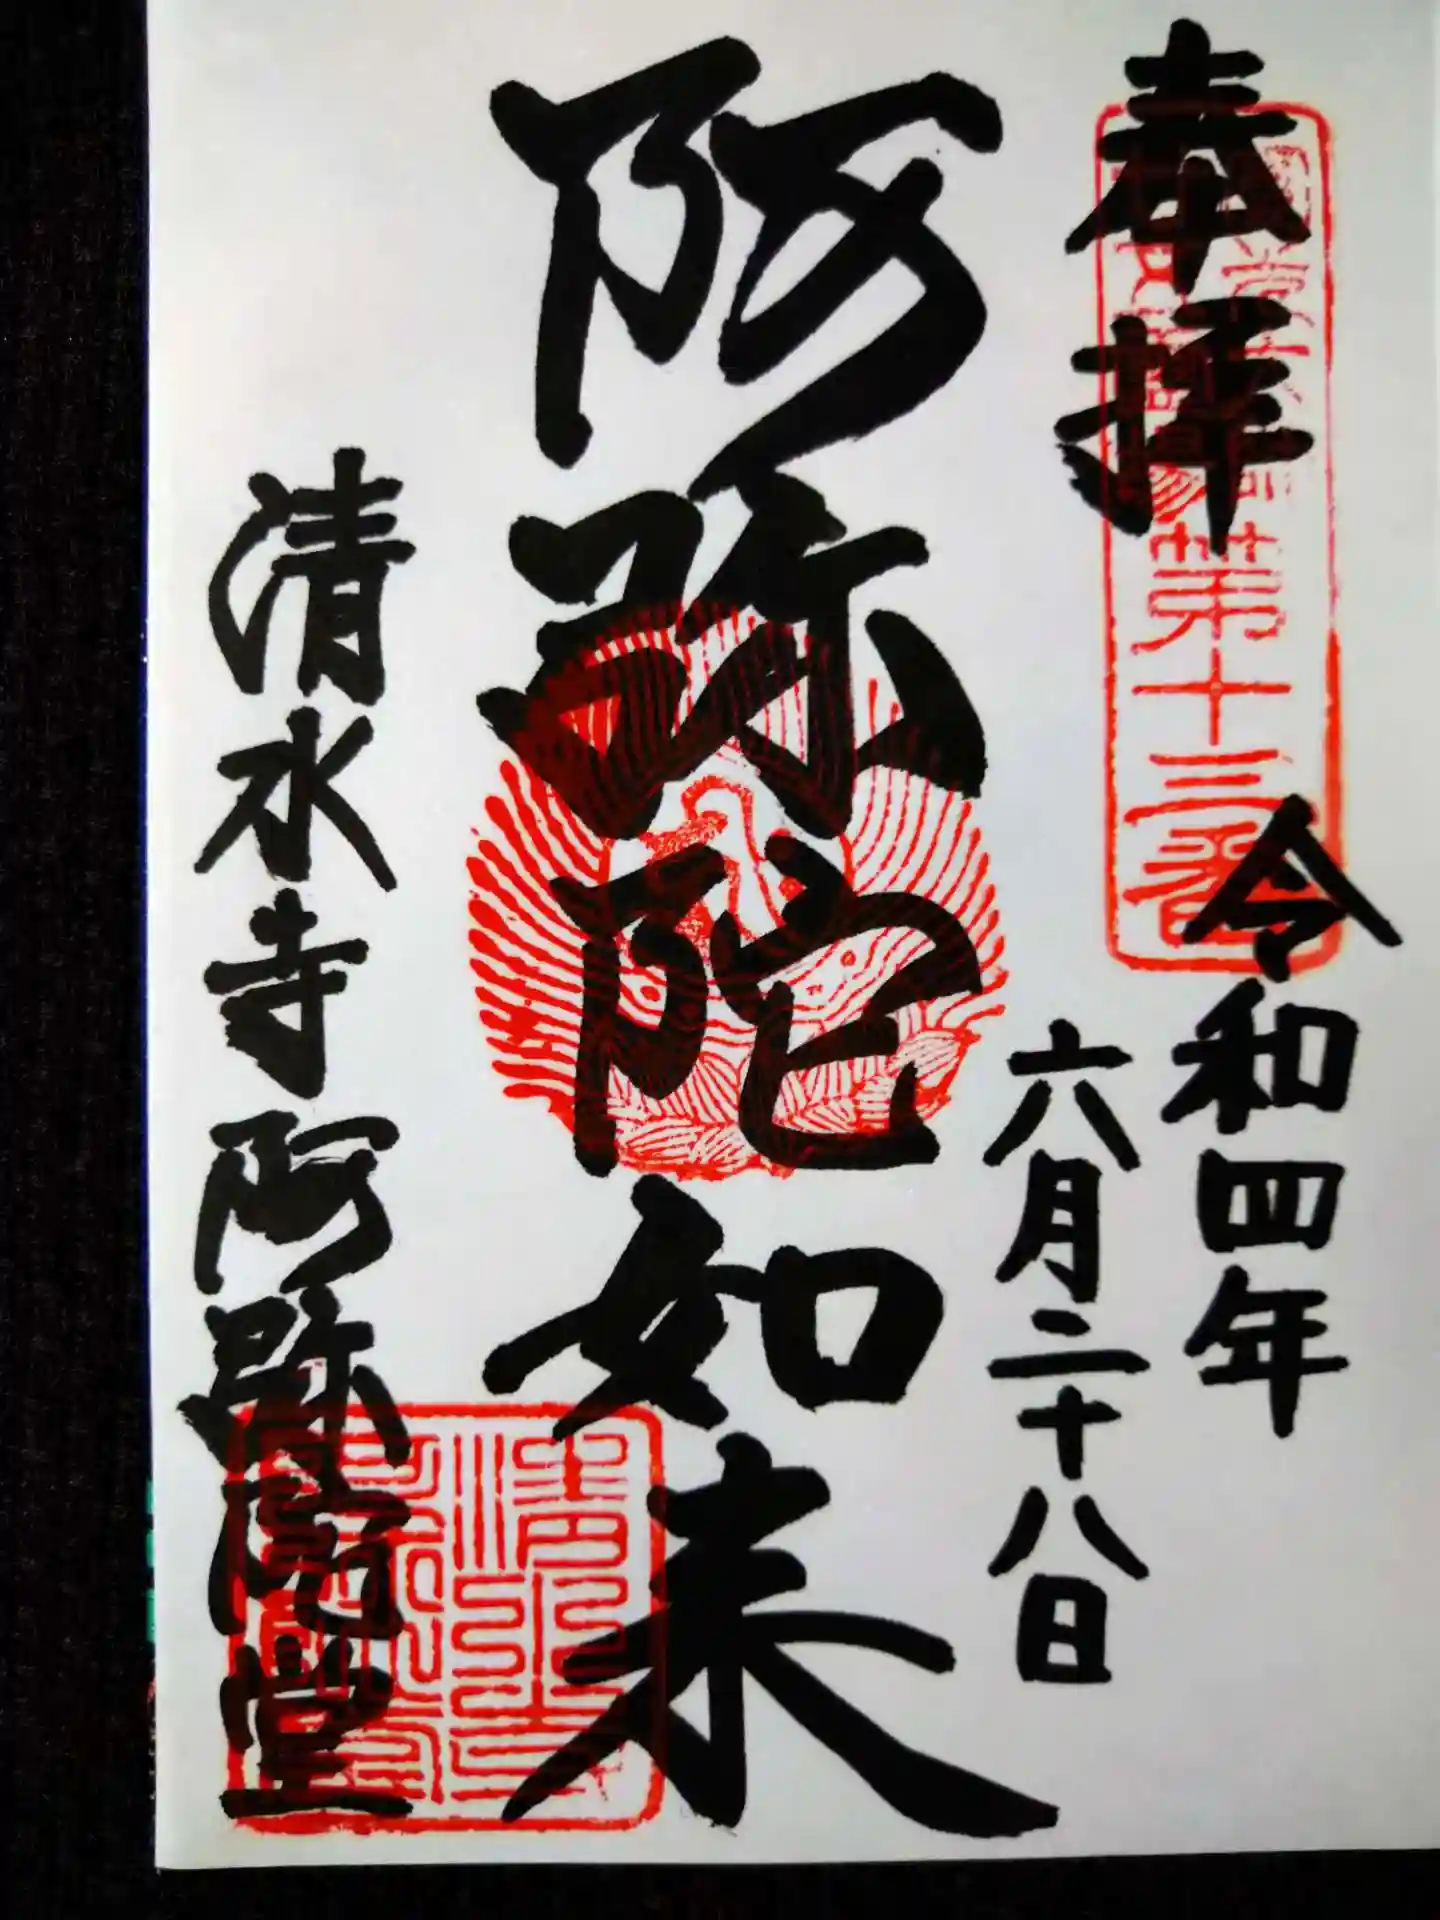 奉拝
第十三番
令和四年
六月二十八日
阿弥陀如来
清水寺阿弥陀堂